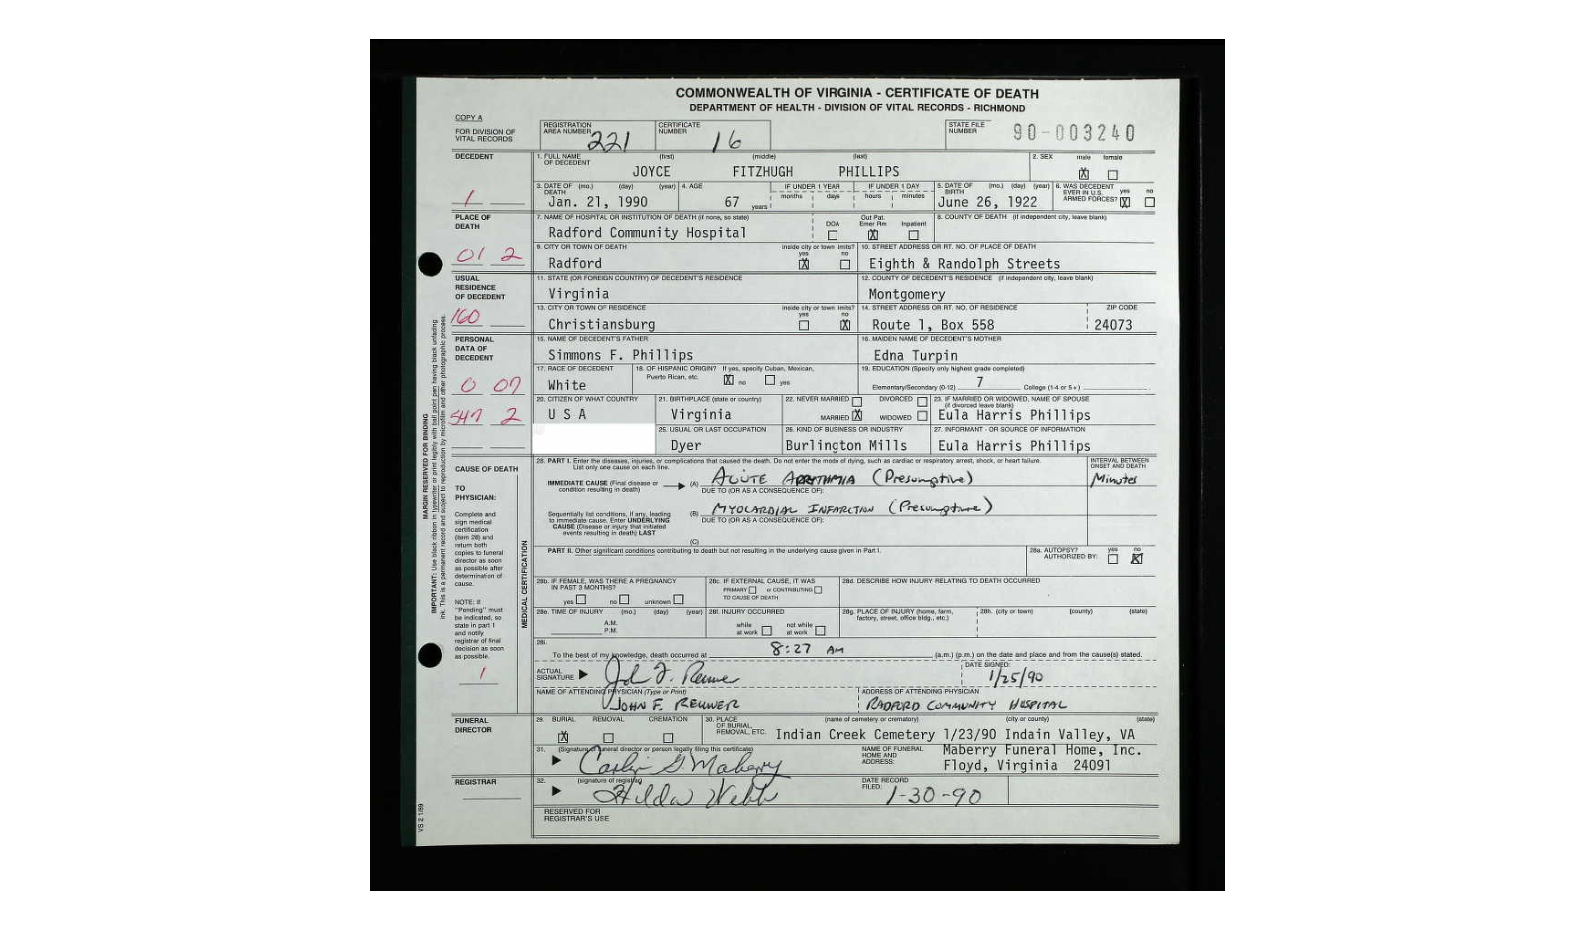 COMMONWEALTH OF VIRGINIA - CERTIFICATE OF DEATH
DEPARTMENT OF HEALTH - DIVISION OF VITAL RECORDS - RICHMOND
COPY A
FOR DIVISION OF VITAL RECORDS
REGISTRATION AREA NUMBER 221 CERTIFICATE NUMBER 16 STATE FILE NUMBER 90-003240
DECEDENT
1. FULL NAME OF DECEDENT (first) (middle) (last) 2. SEX male female
JOYCE FITZHUGH PHILLIPS X
3. DATE OF DEATH (mo.) (day) (year) 4. AGE IF UNDER 1 YEAR months days IF UNDER 1 DAY hours minutes 5. DATE OF BIRTH (mo.) (day) (year) 6. WAS DECEDENT EVER IN U.S. ARMED FORCES? yes no
1 Jan. 21, 1990 67 years June 26, 1922 X
PLACE OF DEATH
7. NAME OF HOSPITAL OR INSTITUTION OF DEATH (if none, so state) DOA Out Pat. Emer Rm Inpatient 8. COUNTY OF DEATH (if independent city, leave blank)
Radford Community Hospital X
9. CITY OR TOWN OF DEATH inside city or town limits? yes no 10. STREET ADDRESS OR RT. NO. OF PLACE OF DEATH
01 2 Radford X Eighth & Randolph Streets
USUAL RESIDENCE OF DECEDENT
11. STATE (OR FOREIGN COUNTRY) OF DECEDENT'S RESIDENCE 12. COUNTY OF DECEDENT'S RESIDENCE (if independent city, leave blank)
Virginia Montgomery
13. CITY OR TOWN OF RESIDENCE inside city or town limits? yes no 14. STREET ADDRESS OR RT. NO. OF RESIDENCE ZIP CODE
160 Christiansburg X Route 1, Box 558 24073
PERSONAL DATA OF DECEDENT
15. NAME OF DECEDENT'S FATHER 16. MAIDEN NAME OF DECEDENT'S MOTHER
Simmons F. Phillips Edna Turpin
17. RACE OF DECEDENT 18. OF HISPANIC ORIGIN? If yes, specify Cuban, Mexican, Puerto Rican, etc. X no yes 19. EDUCATION (Specify only highest grade completed)
0 07 White Elementary/Secondary (0-12) 7 College (1-4 or 5+)
20. CITIZEN OF WHAT COUNTRY 21. BIRTHPLACE (state or country) 22. NEVER MARRIED DIVORCED MARRIED X WIDOWED 23. IF MARRIED OR WIDOWED, NAME OF SPOUSE (if divorced leave blank)
547 2 U S A Virginia Eula Harris Phillips
25. USUAL OR LAST OCCUPATION 26. KIND OF BUSINESS OR INDUSTRY 27. INFORMANT - OR SOURCE OF INFORMATION
Dyer Burlington Mills Eula Harris Phillips
CAUSE OF DEATH
28. PART I. Enter the diseases, injuries, or complications that caused the death. Do not enter the mode of dying, such as cardiac or respiratory arrest, shock, or heart failure. List only one cause on each line.
INTERVAL BETWEEN ONSET AND DEATH
IMMEDIATE CAUSE (Final disease or condition resulting in death) (A) ACUTE (Presumptive) Minutes
DUE TO (OR AS A CONSEQUENCE OF):
Sequentially list conditions, if any, leading to immediate cause. Enter UNDERLYING CAUSE (Disease or injury that initiated events resulting in death) LAST
(B) MYOCARDIAL INFARCTION (Presumptive)
DUE TO (OR AS A CONSEQUENCE OF):
(C)
PART II. Other significant conditions contributing to death but not resulting in the underlying cause given in Part I.
28a. AUTOPSY? AUTHORIZED BY: yes no X
28b. IF FEMALE, WAS THERE A PREGNANCY IN PAST 3 MONTHS? yes no unknown
28c. IF EXTERNAL CAUSE, IT WAS PRIMARY or CONTRIBUTING TO CAUSE OF DEATH
28d. DESCRIBE HOW INJURY RELATING TO DEATH OCCURRED
28e. TIME OF INJURY (mo.) (day) (year) A.M. P.M.
28f. INJURY OCCURRED while at work not while at work
28g. PLACE OF INJURY (home, farm, factory, street, office bldg., etc.)
28h. (city or town) (county) (state)
28i.
To the best of my knowledge, death occurred at 8:27 AM (a.m.) (p.m.) on the date and place and from the cause(s) stated.
ACTUAL SIGNATURE DATE SIGNED: 1/25/90
NAME OF ATTENDING PHYSICIAN (Type or Print) ADDRESS OF ATTENDING PHYSICIAN
JOHN F. RADFORD COMMUNITY HOSPITAL
TO PHYSICIAN:
Complete and sign medical certification (item 28) and return both copies to funeral director as soon as possible after determination of cause.
NOTE: If "Pending" must be indicated, so state in part 1 and notify registrar of final decision as soon as possible.
1
MEDICAL CERTIFICATION
FUNERAL DIRECTOR
29. BURIAL REMOVAL CREMATION 30. PLACE OF BURIAL, REMOVAL, ETC. (name of cemetery or crematory) (city or county) (state)
X Indian Creek Cemetery 1/23/90 Indain Valley, VA
31. (Signature of funeral director or person legally filing this certificate) NAME OF FUNERAL HOME AND ADDRESS: Maberry Funeral Home, Inc.
Floyd, Virginia 24091
REGISTRAR
32. (signature of registrar) Hilda Webb DATE RECORD FILED: 1-30-90
RESERVED FOR REGISTRAR'S USE
MARGIN RESERVED FOR BINDING
IMPORTANT: Use black ribbon in typewriter or print legibly with ball point pen having black unfading ink. This is a permanent record and subject to reproduction by microfilm and other photographic process.
VS 2 1/89